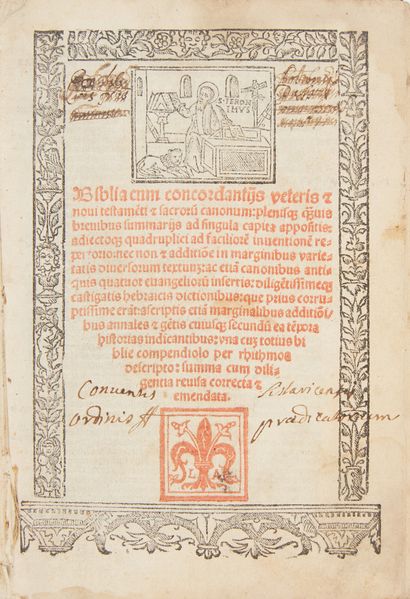 S·IERON
IMVS
Biblia cum concordantijs veteris ⁊
noui testamēti ⁊ sacrorū canonum: plenisq; q̄uis
breuibus summarijs ad singula capita appositis:
adiectoq; quadruplici ad faciliorē inuentionē re
pertorio: nec non ⁊ additiōe in marginibus varie
tatis diuersorum textuum: ac etiā canonibus anti
quis quatuor euangeliorū insertis: diligētissimeq;
castigatis hebraicis dictionibus: que prius corru
ptissime erāt: ascriptis etiā marginalibus additiōi
bus annales ⁊ gētis cuiusq; secundū ea tēpora
historias indicantibus: vna cuz totius bi
blie compendiolo per rhithmos
descripto: summa cum dili
gentia reuisa correcta ⁊
emendata.
Conuentus
ordinis ff prædicatorum
L A